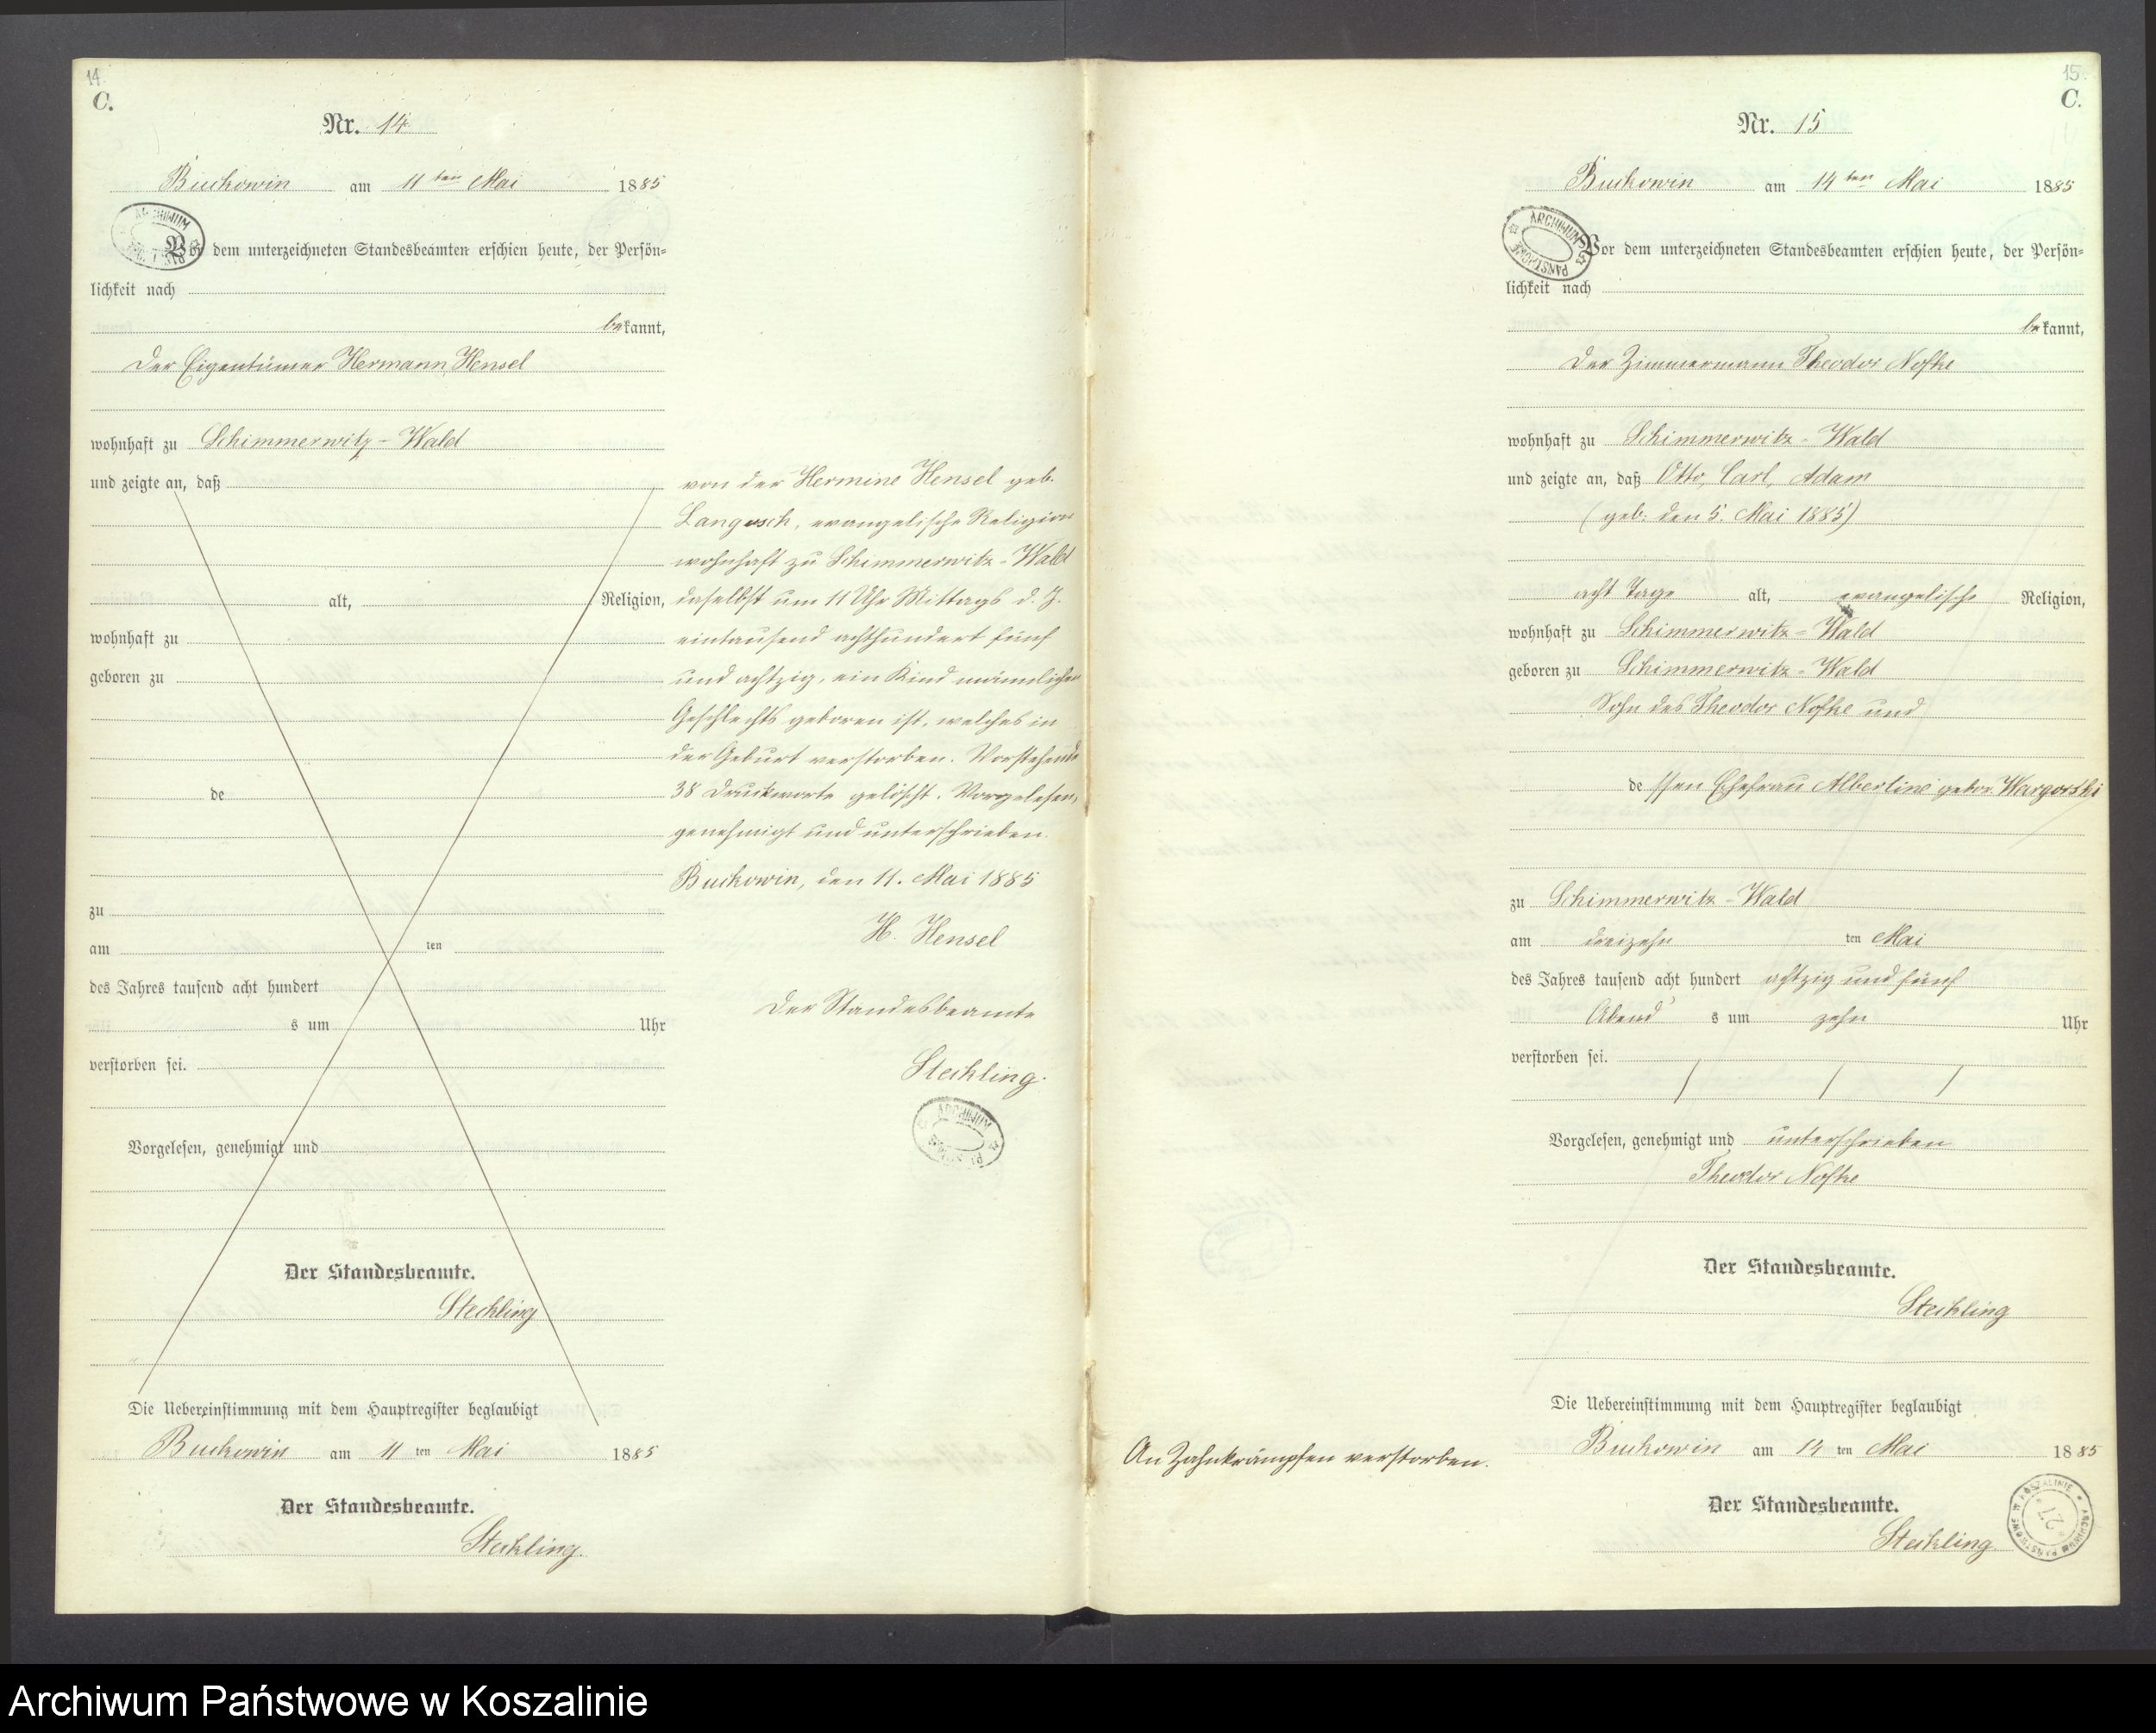 14.
C.
Nr. 14
Buckowin am 11ten Mai 1885
Vor dem unterzeichneten Standesbeamten erschien heute, der Persön-
lichkeit nach
bekannt,
der Eigentümer Hermann Hensel
wohnhaft zu Schimmerwitz-Wald
und zeigte an, daß
alt, Religion,
wohnhaft zu
geboren zu
de
zu
am ten
des Jahres tausend acht hundert
s um Uhr
verstorben sei.
Vorgelesen, genehmigt und
Der Standesbeamte.
Steckling
Die Uebereinstimmung mit dem Hauptregister beglaubigt
Buckowin am 11 ten Mai 1885
Der Standesbeamte.
Steckling.
von der Hermine Hensel geb.
Langosch, evangelische Religion
wohnhaft zu Schimmerwitz-Wald
daselbst um 11 Uhr Mittags d. J.
eintausend achthundert fünf
und achtzig, ein Kind männlichen
Geschlechts geboren ist, welches in
der Geburt verstorben. Vorstehende
38 Druckworte gelöscht. Vorgelesen,
genehmigt und unterschrieben.
Buckowin, den 11. Mai 1885
H. Hensel
Der Standesbeamte
Steckling.
ARCHIWUM
15.
C.
Nr. 15
Buckowin am 14ten Mai 1885
ARCHIWUM PAŃSTWOWE
Vor dem unterzeichneten Standesbeamten erschien heute, der Persön-
lichkeit nach
bekannt,
der Zimmermann Theodor Nofke
wohnhaft zu Schimmerwitz-Wald
und zeigte an, daß Otto, Carl, Adam
(geb: den 5. Mai 1885)
acht Tage alt, evangelische Religion,
wohnhaft zu Schimmerwitz-Wald
geboren zu Schimmerwitz-Wald
Sohn des Theodor Nofke und
dessen Ehefrau Albertine gebor. Wargorski
zu Schimmerwitz-Wald
am dreizehn ten Mai
des Jahres tausend acht hundert achtzig und fünf
Abend s um zehn Uhr
verstorben sei.
Vorgelesen, genehmigt und unterschrieben
Theodor Nofke
Der Standesbeamte.
Steckling
Die Uebereinstimmung mit dem Hauptregister beglaubigt
An Zahnkrämpfen verstorben.
Buckowin am 14 ten Mai 1885
Der Standesbeamte.
Steckling
ARCHIWUM PAŃSTWOWE W KOSZALINIE
27
Archiwum Państwowe w Koszalinie